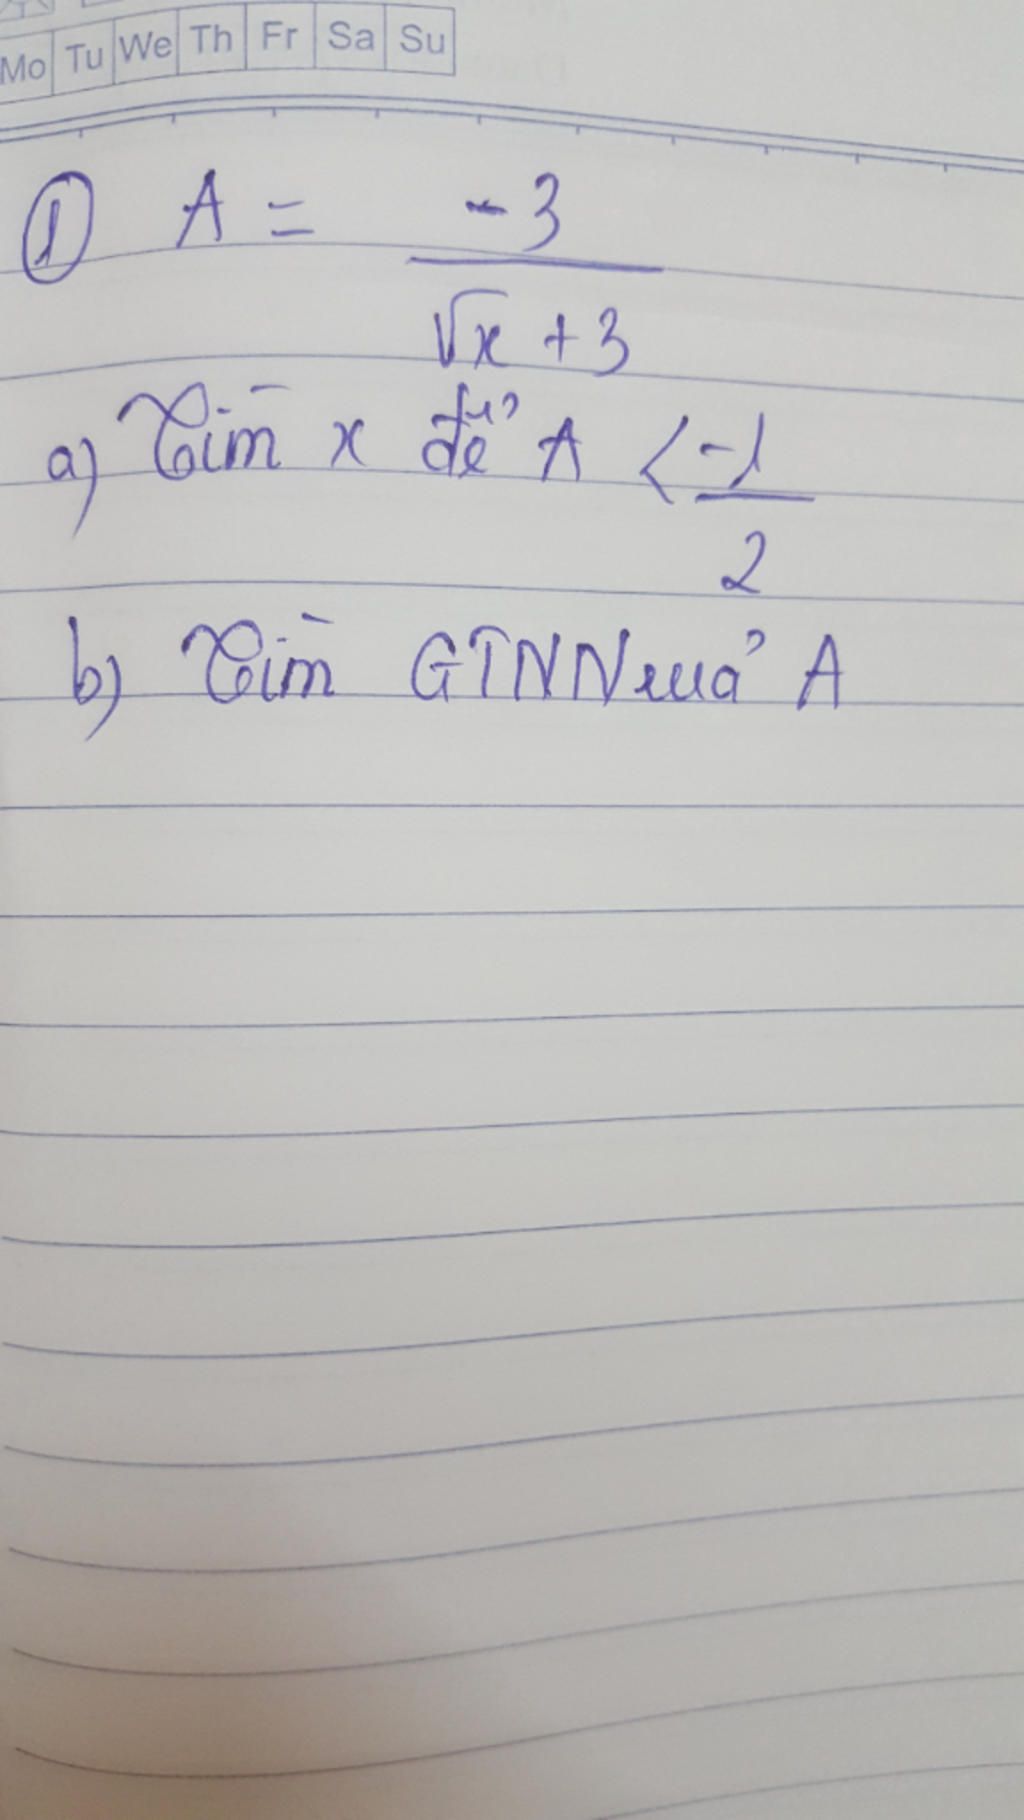 Mo Tu We Th Fr Sa Su
① A = -3
√x + 3
a) Tìm x để A < -1
2
b) Tìm GTNN của A